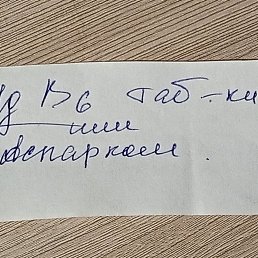 Mg B6 таб-ки
или
Аспаркам